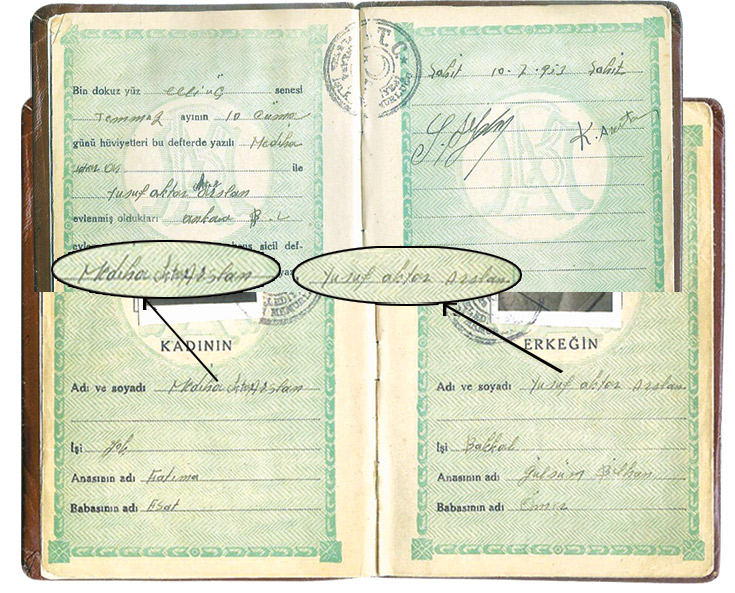 Bin dokuz yüz elliüç senesi
Temmuz ayının 10 Cüma
günü hüviyetleri bu defterde yazılı Mediha
ile
Yusuf aktor Arslan
evlenmiş oldukları ankara B.
sicil def-
T.C.
Şahit 10-7-953 Şahit
Mediha Arslan
Yusuf aktor Arslan
KADININ
Adı ve soyadı Mediha Arslan
İşi yok
Anasının adı Fatıma
Babasının adı Esat
ERKEĞİN
Adı ve soyadı Yusuf aktor Arslan
İşi Bakkal
Anasının adı Gülsüm Bilhan
Babasının adı Ömer